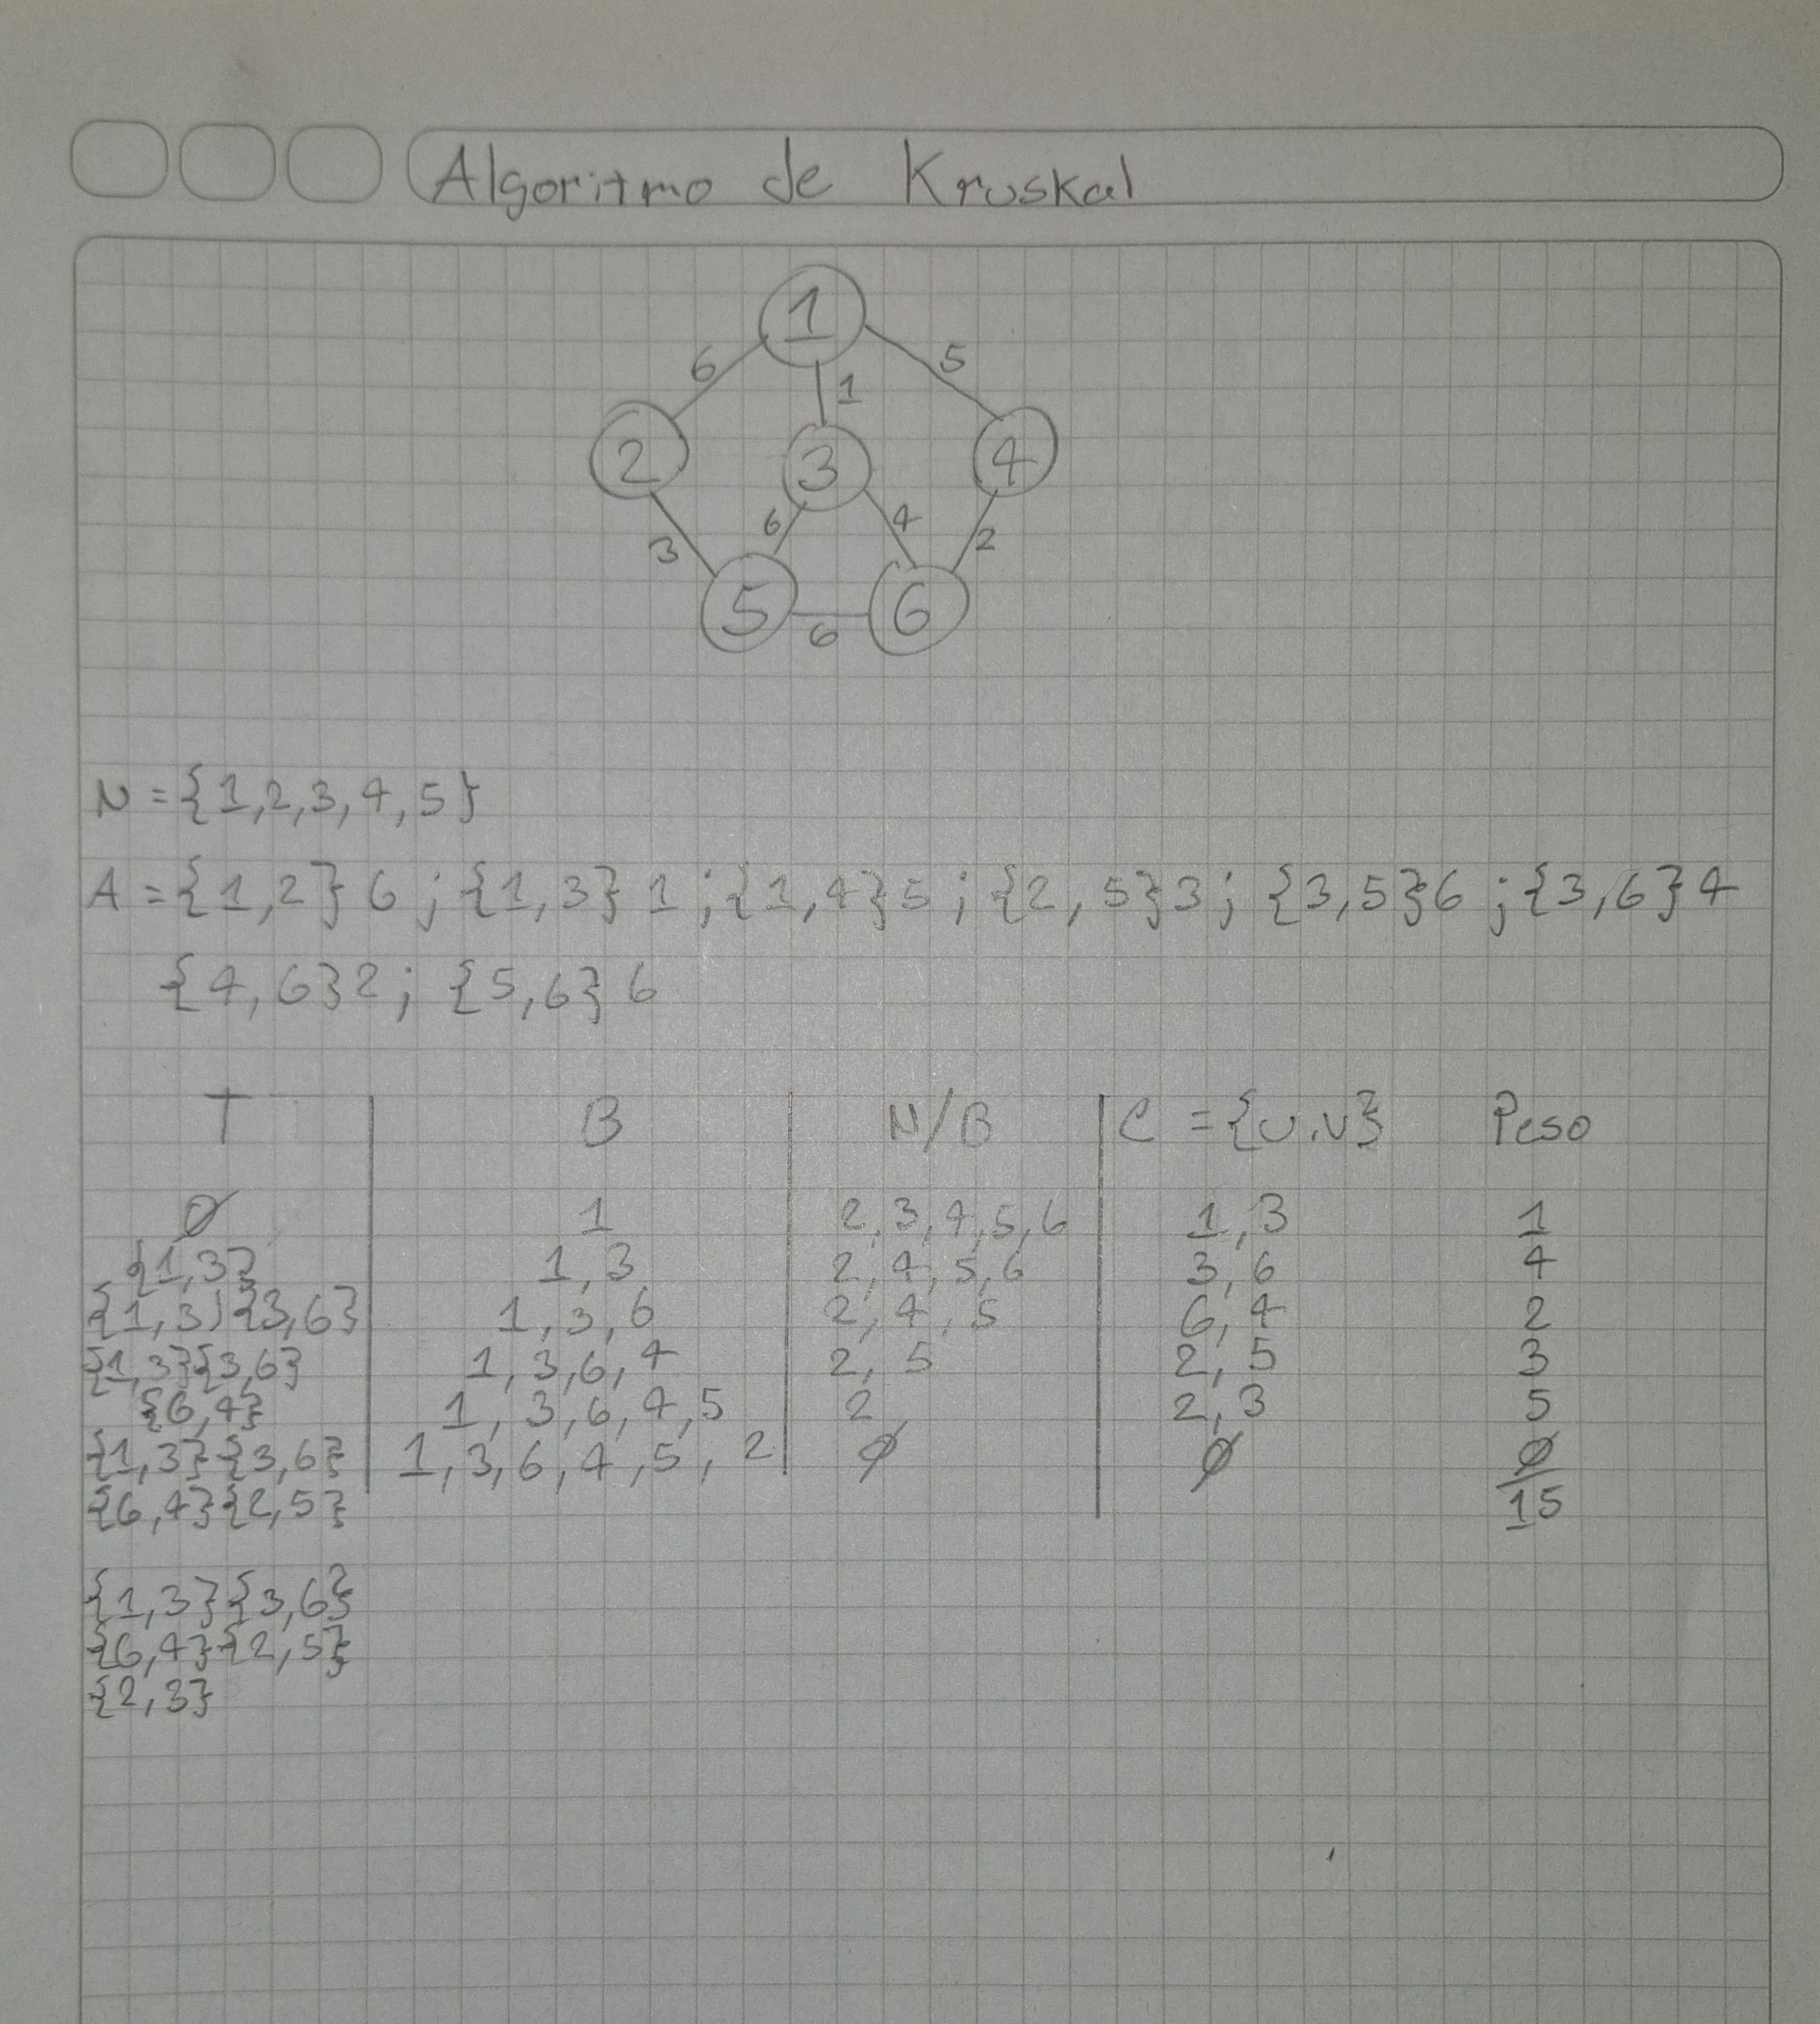 Algoritmo de Kruskal
1
6 5
1
2 3 4
6 4
3 2
5 6
6
N = {1,2,3,4,5}
A = {1,2} 6 ; {1,3} 1 ; {1,4} 5 ; {2,5} 3 ; {3,5} 6 ; {3,6} 4
{4,6} 2 ; {5,6} 6
T B N/B C = {u.v} Peso
∅ 1 2,3,4,5,6 1,3 1
{1,3} 1,3 2,4,5,6 3,6 4
{1,3){3,6} 1,3,6 2,4,5 6,4 2
{1,3}{3,6} 1,3,6,4 2,5 2,5 3
{6,4} 1,3,6,4,5 2 2,3 5
{1,3}{3,6} 1,3,6,4,5,2 ∅ ∅ ∅
{6,4}{2,5} 15
{1,3}{3,6}
{6,4}{2,5}
{2,3}